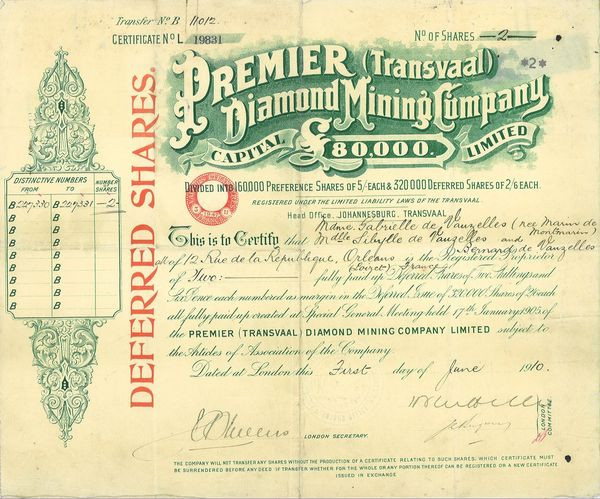 Transfer No B 11012
CERTIFICATE No L 19831
No OF SHARES —2—
*2*
PREMIER (Transvaal)
Diamond Mining Company
CAPITAL £80,000. LIMITED
DIVIDED INTO 160,000 PREFERENCE SHARES OF 5/- EACH & 320000 DEFERRED SHARES OF 2/6 EACH.
REGISTERED UNDER THE LIMITED LIABILITY LAWS OF THE TRANSVAAL.
Head Office, JOHANNESBURG, TRANSVAAL
DEFERRED SHARES.
DISTINCTIVE NUMBERS
FROM TO
NUMBER OF SHARES
B 227330 B 227331 —2—
B B
B B
B B
B B
B B
B B
B B
Mdme Gabrielle de Vauzelles (nee Marin de Montmarin)
This is to Certify that Mdlle Sibylle de Vauzelles and Bernard de Vauzelles
all of 12 Rue de la Republique, Orleans is the Registered Proprietor
(Loiret), France
of Two:— fully paid up Deferred Shares of two Shillings and
Six Pence each numbered as margin in the Deferred Issue of 320,000 Shares of 2/6 each
all fully paid up created at Special General Meeting held 17th January 1905 of
the PREMIER (TRANSVAAL) DIAMOND MINING COMPANY LIMITED subject to
the Articles of Association of the Company.
Dated at London this First day of June 1910.
LONDON SECRETARY.
LONDON COMMITTEE
THE COMPANY WILL NOT TRANSFER ANY SHARES WITHOUT THE PRODUCTION OF A CERTIFICATE RELATING TO SUCH SHARES, WHICH CERTIFICATE MUST
BE SURRENDERED BEFORE ANY DEED OF TRANSFER WHETHER FOR THE WHOLE OR ANY PORTION THEREOF CAN BE REGISTERED OR A NEW CERTIFICATE
ISSUED IN EXCHANGE.